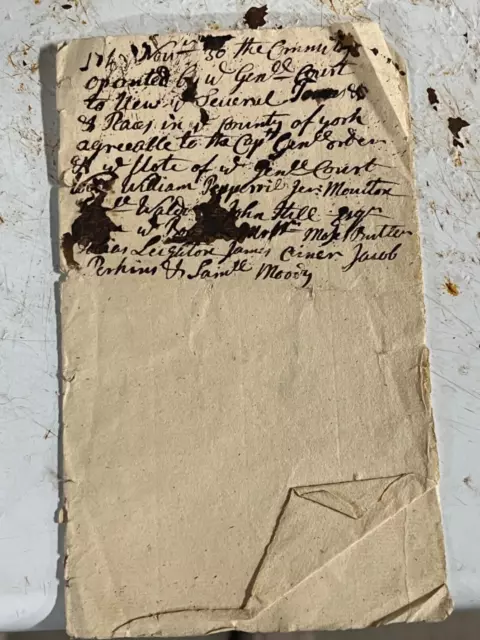 Novr 30 the Committee
opointed by ye Genll Court
to View ye Severel Townes
& Places in ye county of york
agreeable to the Capt Genll order
& ye Vote of ye Genll Court
William Pepperril Jer: Moulton
Wald John Hill Esqr
ye Butler
Elias Leighton James Jacob
Perkins & Samll Moody